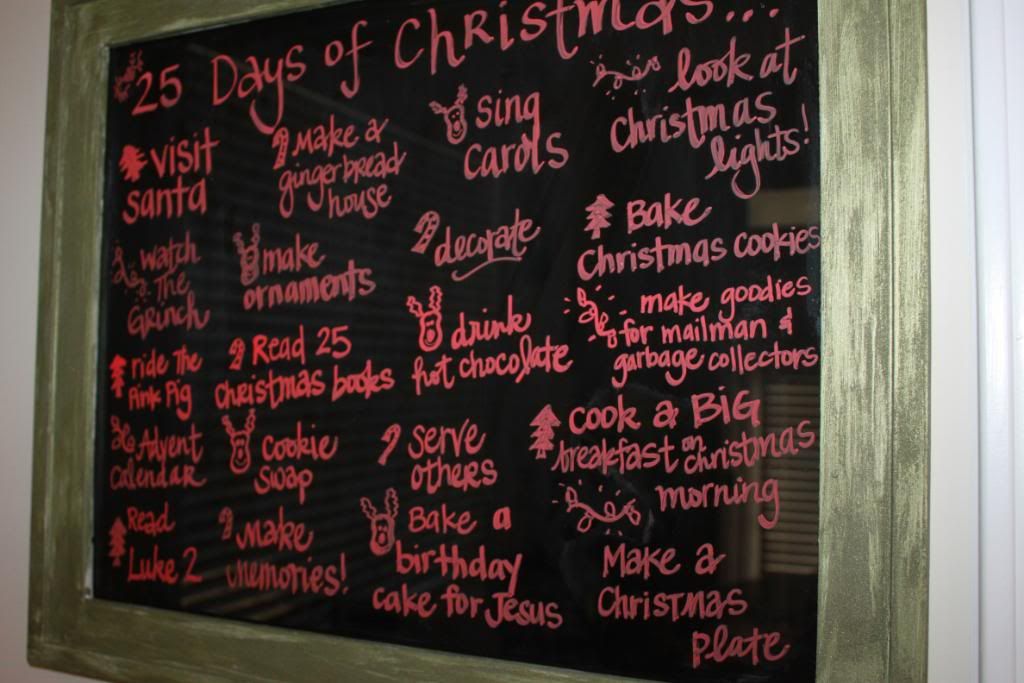 25 Days of Christmas...
visit
santa
make a
gingerbread
house
sing
carols
look at
Christmas
lights!
watch
The
Grinch
make
ornaments
decorate
Bake
Christmas cookies
ride The
Pink Pig
Read 25
Christmas books
drink
hot chocolate
make goodies
for mailman &
garbage collectors
Advent
Calendar
cookie
swap
serve
others
cook a BIG
breakfast on christmas
morning
Read
Luke 2
Make
memories!
Bake a
birthday
cake for Jesus
Make a
Christmas
plate